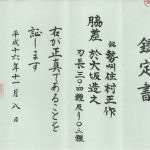 鑑定書
脇差
銘 勢州住村正作
於大坂造之
刃長
右が正真であることを
証します
平成十六年十一月八日